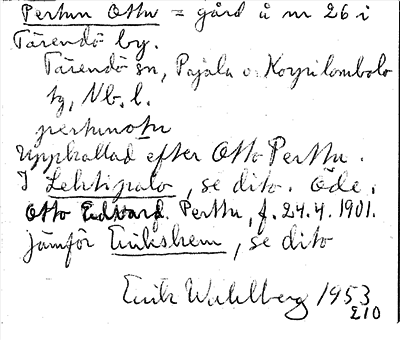 Perttun Ottu = gård å nr 26 i
Tärendö by.
Tärendö sn, Pajala o. Korpilombolo
tg, Nb. l.
perttunotu
Uppkallad efter Otto Perttu.
I Lehtipalo, se dito. Öde.
Otto Edvard Perttu, f. 24.4.1901.
Jämför Erikshem, se dito
Erik Wahlberg 1953
E10